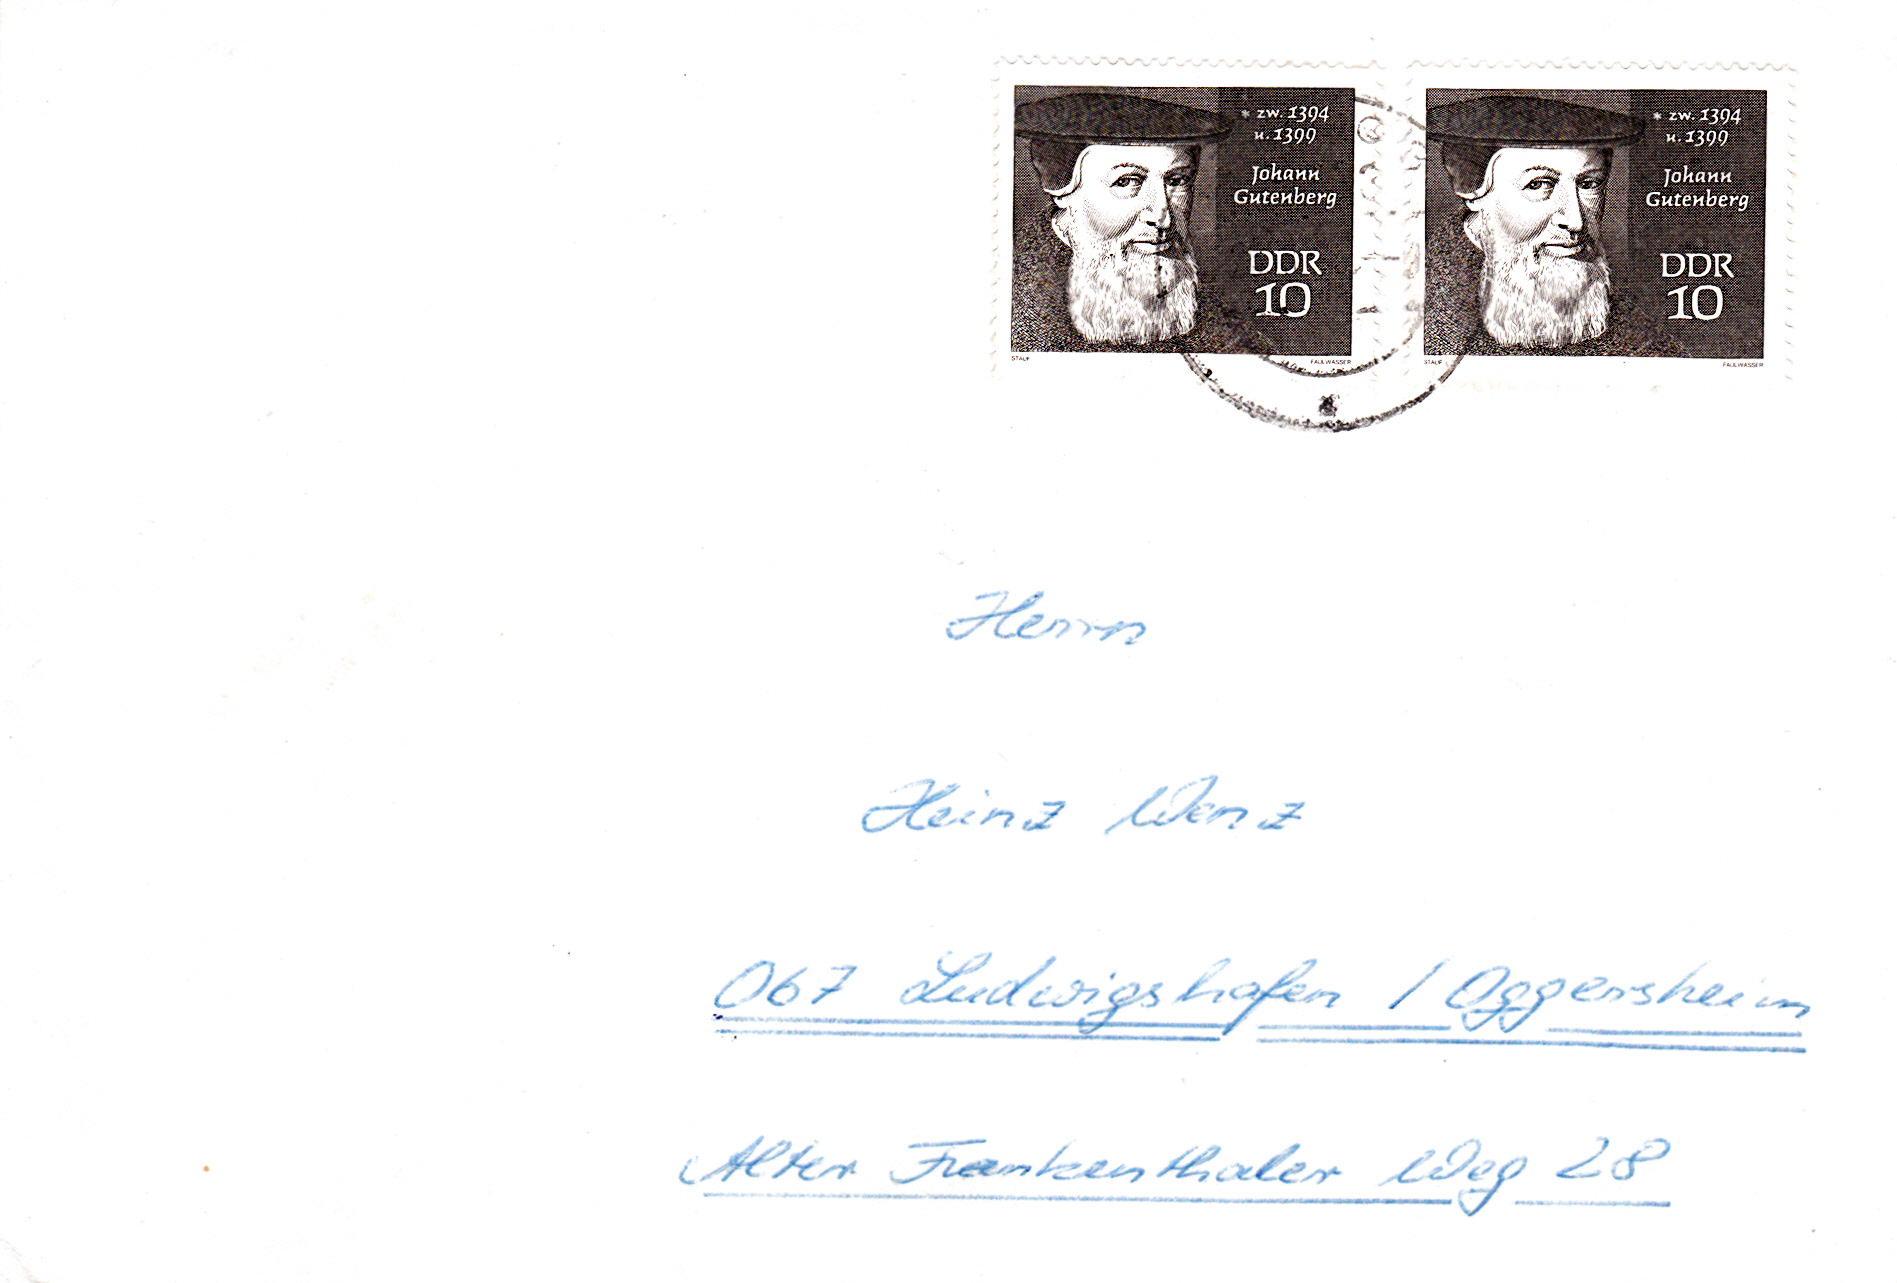 * zw. 1394
u. 1399
Johann
Gutenberg
DDR
10
STAUF
FAULWASSER
* zw. 1394
u. 1399
Johann
Gutenberg
DDR
10
STAUF
FAULWASSER
Herrn
Heinz Wenz
067 Ludwigshafen / Oggersheim
Alter Frankenthaler Weg 28